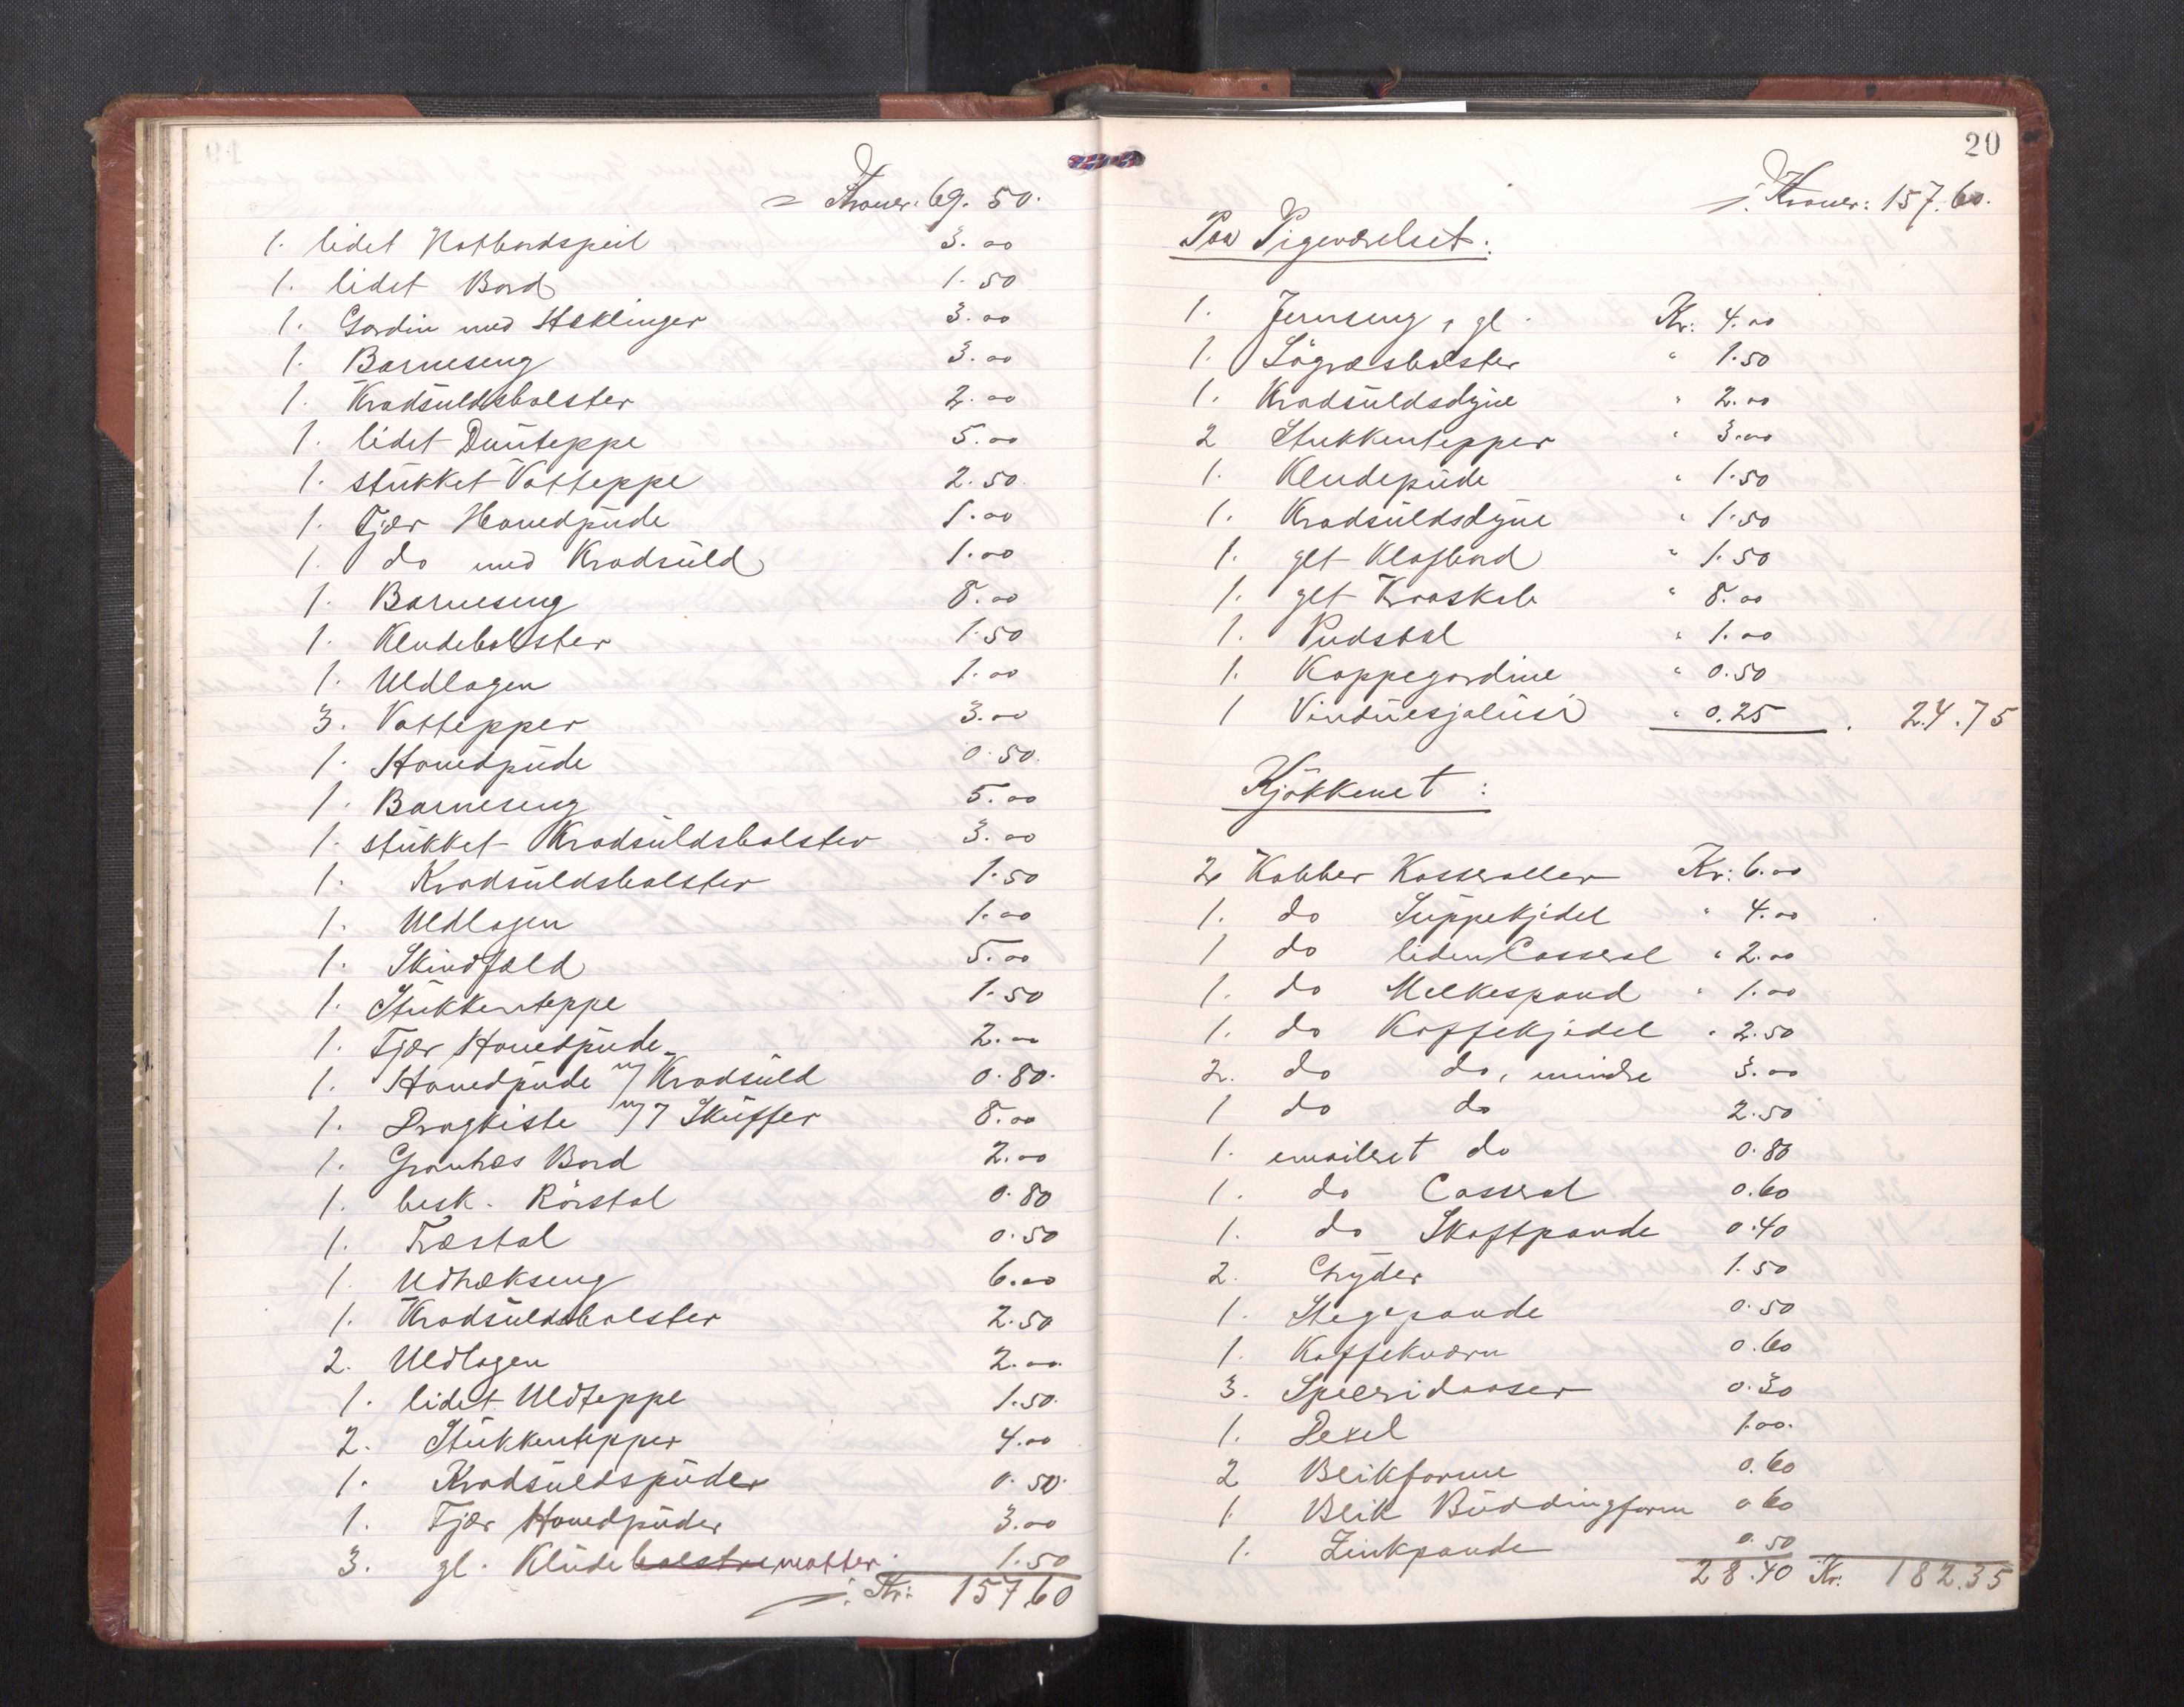 Kroner: 69.50.
1. lidet Natbordspeil 3.00
1. lidet Bord 1.50
1. Gardin med Heklinger 3.00
1. Barneseng 3.00
1. Kradsuldsbolster 2.00
1. lidet Dunteppe 5.00
1. stukket Vatteppe 2.50.
1. Fjær Hovedpude 1.00
1. do med Kradsuld 1.00
1. Barneseng 8.00
1. Kludebolster 1.50
1. Uldlagen 1.00
3. Vattepper 3.00
1. Hovedpude 0.50.
1. Barneseng 5.00
1. stukket Kradsuldsbolster 3.00
1. Kradsuldsbolster 1.50
1. Uldlagen 1.00
1. Skindfæld 5.00
1. Stukkenteppe 1.50
1. Fjær Hovedpude 2.00
1. Hovedpude m/ Kradsuld 0.80.
1. Dragkiste m/ 7 Skuffer 8.00
1. Grantræs Bord 2.00
1. besk. Rörstol 0.80
1. Træstol 0.50
1. Udtrækseng 6.00
1. Kradsuldsbolster 2.50
2. Uldlagen 2.00.
1. lidet Uldteppe 1.50.
2. Stukkentepper 4.00
1. Kradsuldspuder 0.50.
1. Fjær Hovedpuder 3.00
3. gl. Kludebolstre matter. 1.50
Kr: 157.60
20
Kroner: 157.60.
Paa Pigeværelset:
1. Jernseng, gl. Kr: 4.00
1. Sögræsbolster " 1.50
1. Kradsuldsdyne " 2.00
2 Stukkentepper " 3.00
1. Kludepude " 1.50
1. Kradsuldsdyne " 1.50
1. glt Klafbord " 1.50
1. glt Kroskab " 8.00
1. Pudstol " 1.00
1. Kappegardine " 0.50
1 Vinduesjalusi " 0.25 . 24.75
Kjökkenet:
2 Kobber Kasseroller Kr: 6.00
1. do Suppekjedel " 4.00
1 do liden Casserol " 2.00
1. do Melkespand " 1.00
1. do Kaffekjedel " 2.50
2. do do, mindre 3.00
1 do do 2.50
1. emaileret do 0.80
1. do Casserol 0.60
1. do Skaftpande 0.40
2. Gryder 1.50
1. Stegepande 0.50
1. Kaffekværn 0.60
3. Specridaaser 0.30
1. Dexel 1.00.
2 Blikforme 0.60
1. Blik Buddingform 0.60
1. Zinkpande 0.50
28.40 Kr: 182.35